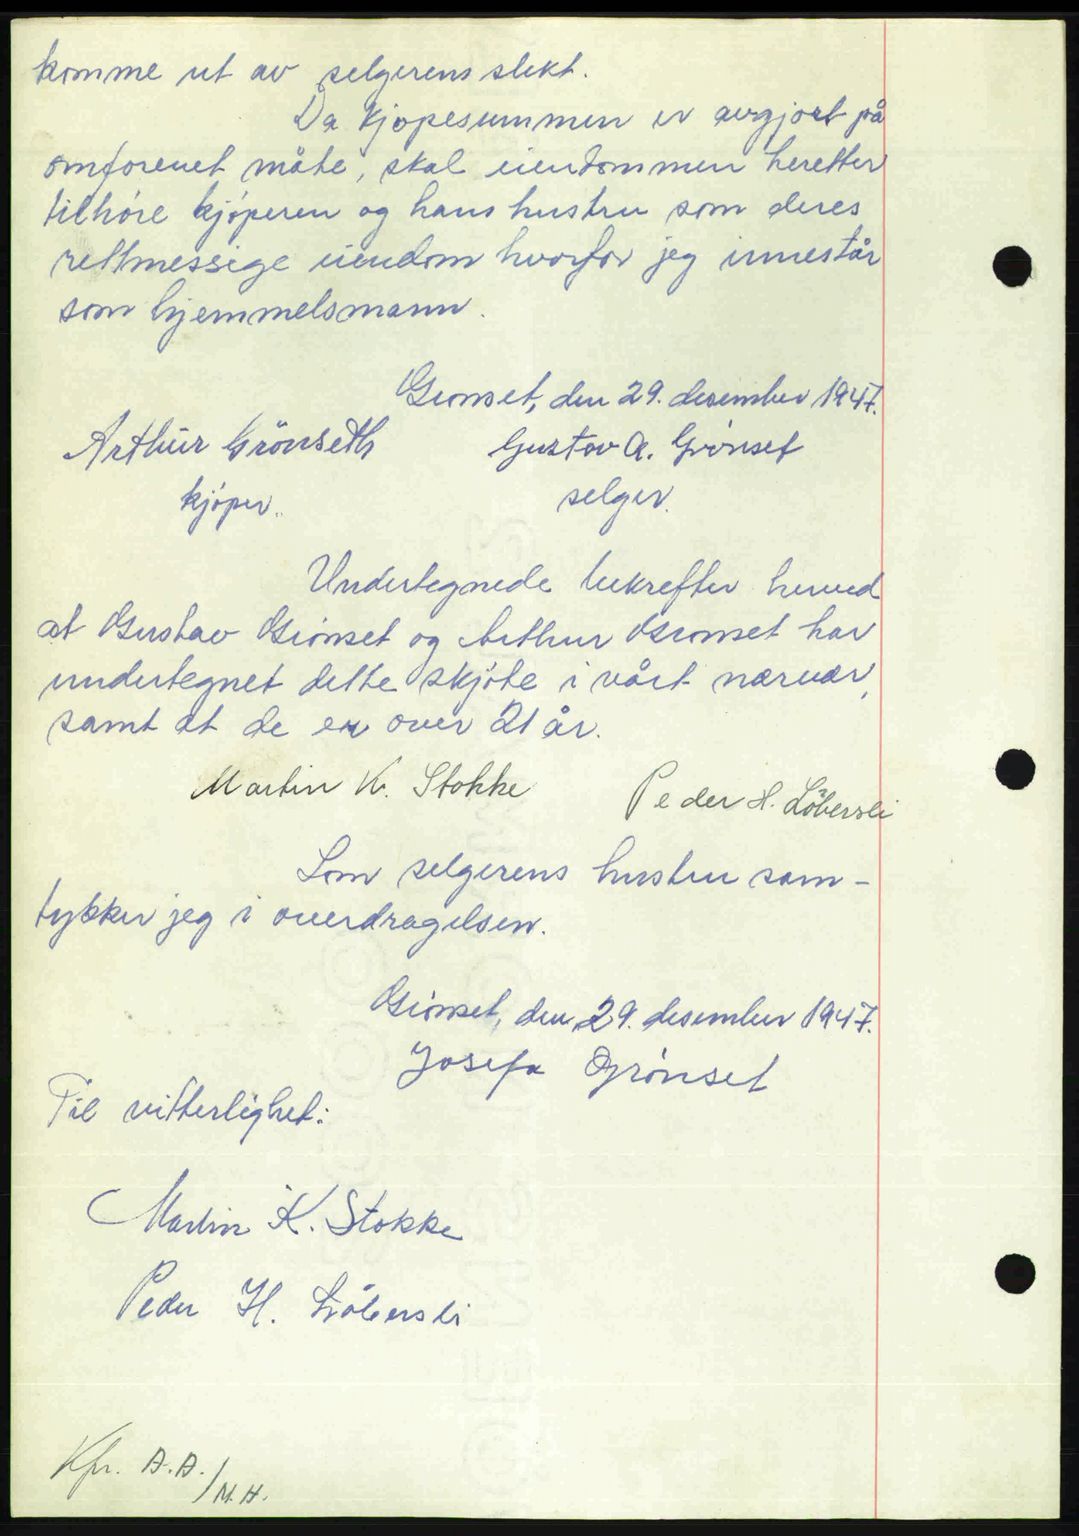 komme ut av selgerens slekt.
Da kjøpesummen er avgjort på
omforenet måte, skal eiendommen heretter
tilhøre kjøperen og hans hustru som deres
rettmessige eiendom hvorfor jeg innestår
som hjemmelsmann.
Grønset, den 29. desember 1947.
Arthur Grönseth
Gustav A. Grönset
kjøper.
selger.
Undertegnede bekrefter herved
at Gustav Grønset og Arthur Grønset har
undertegnet dette skjøte i vårt nærvær,
samt at de er over 21 år.
Martin K. Stokke
Peder H. Löbersli
Som selgerens hustru sam-
tykker jeg i overdragelsen.
Grønset, den 29. desember 1947.
Josefa Grønset
Til vitterlighet:
Martin K. Stokke
Peder H. Löbersli
Kfr. A.A./M.H.